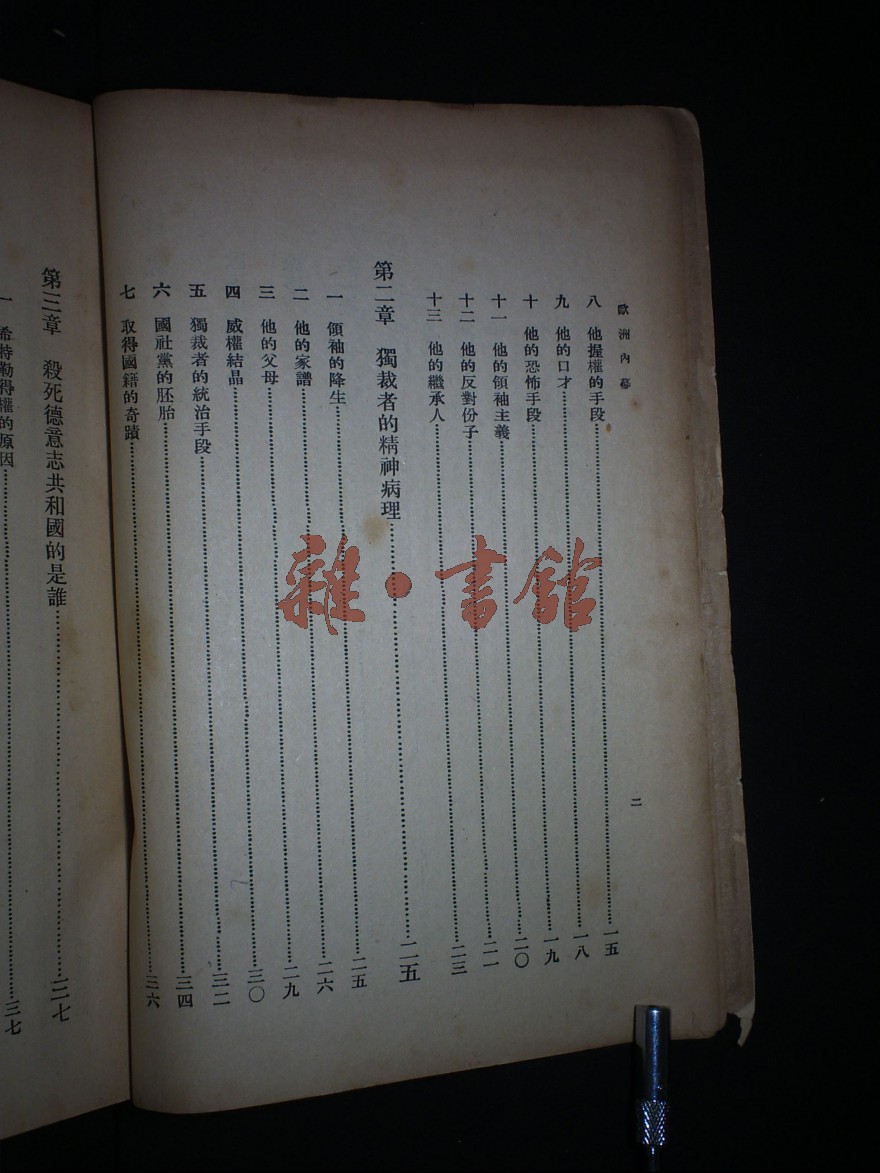 歐洲內幕 二
八 他握權的手段……一五
九 他的口才……一八
十 他的恐怖手段……一九
十一 他的領袖主義……二〇
十二 他的反對份子……二一
十三 他的繼承人……二三
第二章 獨裁者的精神病理……二五
一 領袖的降生……二五
二 他的家譜……二六
三 他的父母……二九
四 威權結晶……三〇
五 獨裁者的統治手段……三二
六 國社黨的胚胎……三四
七 取得國籍的奇蹟……三六
第三章 殺死德意志共和國的是誰……三七
一 希特勒得權的原因……三七
雜·書館